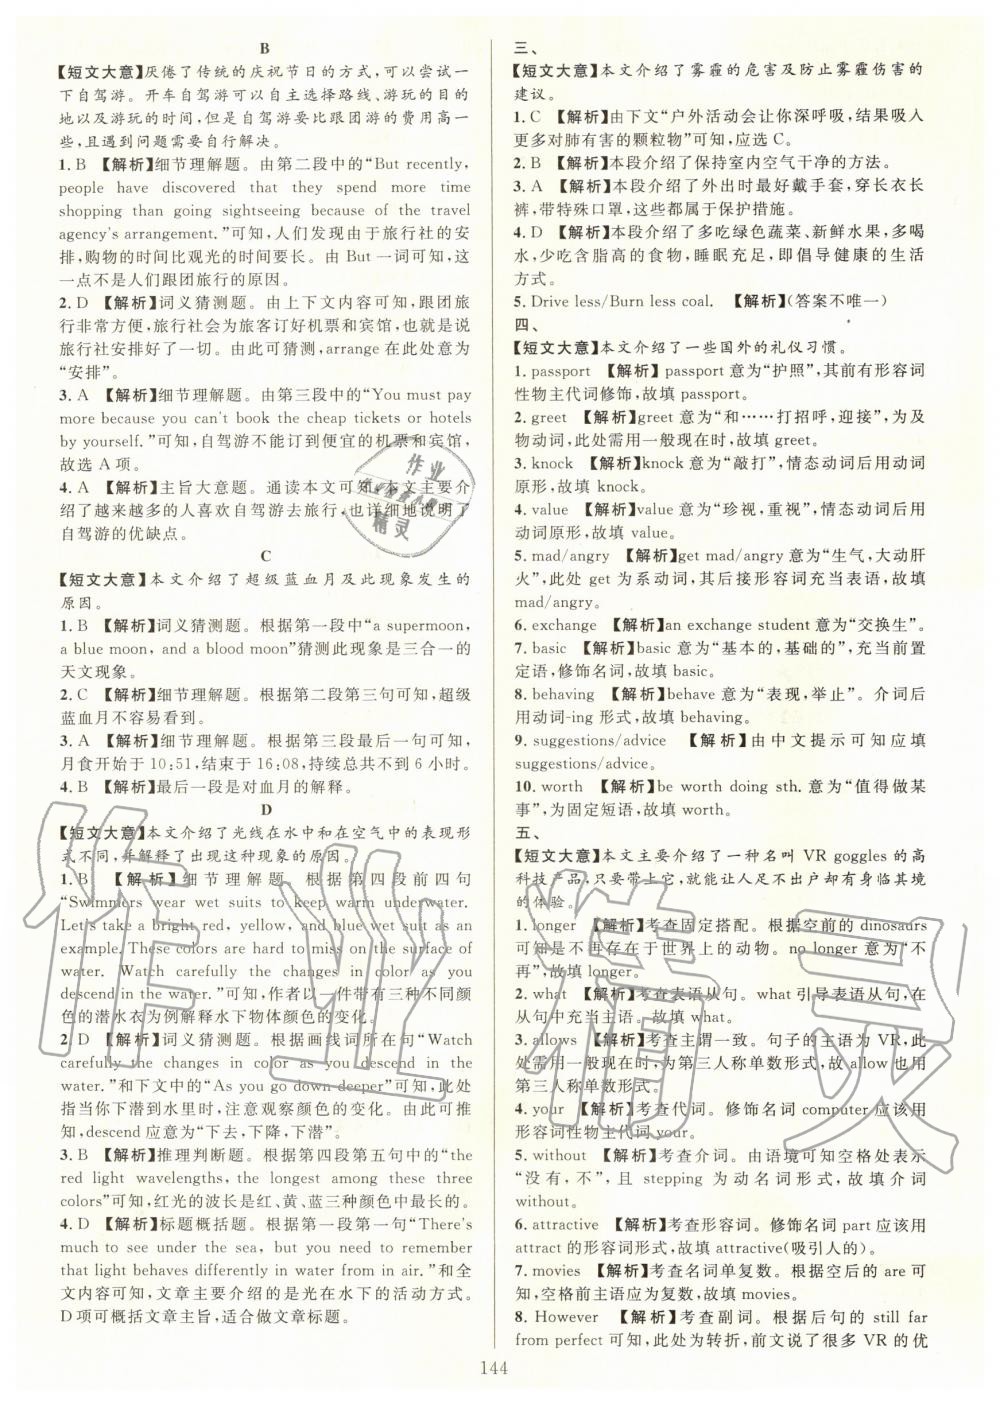 B
【短文大意】厌倦了传统的庆祝节日的方式,可以尝试一
下自驾游。开车自驾游可以自主选择路线、游玩的目的
地以及游玩的时间,但是自驾游要比跟团游的费用高一
些,且遇到问题需要自行解决。
1. B 【解析】细节理解题。由第二段中的“But recently,
people have discovered that they spend more time
shopping than going sightseeing because of the travel
agency's arrangement.”可知,人们发现由于旅行社的安
排,购物的时间比观光的时间要长。由 But 一词可知,这
一点不是人们跟团旅行的原因。
2. D 【解析】词义猜测题。由上下文内容可知,跟团旅
行非常方便,旅行社会为旅客订好机票和宾馆,也就是说
旅行社安排好了一切。由此可猜测,arrange 在此处意为
“安排”。
3. A 【解析】细节理解题。由第三段中的“You must pay
more because you can't book the cheap tickets or hotels
by yourself.”可知,自驾游不能订到便宜的机票和宾馆,
故选 A 项。
4. A 【解析】主旨大意题。通读本文可知,本文主要介
绍了越来越多的人喜欢自驾游去旅行,也详细地说明了
自驾游的优缺点。
C
【短文大意】本文介绍了超级蓝血月及此现象发生的
原因。
1. B 【解析】词义猜测题。根据第一段中“a supermoon,
a blue moon, and a blood moon”猜测此现象是三合一的
天文现象。
2. C 【解析】细节理解题。根据第二段第三句可知,超级
蓝血月不容易看到。
3. A 【解析】细节理解题。根据第三段最后一句可知,
月食开始于 10:51,结束于 16:08,持续总共不到 6 小时。
4. B 【解析】最后一段是对血月的解释。
D
【短文大意】本文介绍了光线在水中和在空气中的表现形
式不同,并解释了出现这种现象的原因。
1. B 【解析】细节理解题。根据第四段前四句
“Swimmers wear wet suits to keep warm underwater.
Let's take a bright red, yellow, and blue wet suit as an
example. These colors are hard to miss on the surface of
water. Watch carefully the changes in color as you
descend in the water.”可知,作者以一件带有三种不同颜
色的潜水衣为例解释水下物体颜色的变化。
2. D 【解析】词义猜测题。根据画线词所在句“Watch
carefully the changes in color as you descend in the
water.”和下文中的“As you go down deeper”可知,此处
指当你下潜到水里时,注意观察颜色的变化。由此可推
知,descend 应意为“下去,下降,下潜”。
3. B 【解析】推理判断题。根据第四段第五句中的“the
red light wavelengths, the longest among these three
colors”可知,红光的波长是红、黄、蓝三种颜色中最长的。
4. D 【解析】标题概括题。根据第一段第一句“There's
much to see under the sea, but you need to remember
that light behaves differently in water from in air.”和全
文内容可知,文章主要介绍的是光在水下的活动方式。
D 项可概括文章主旨,适合做文章标题。
三、
【短文大意】本文介绍了雾霾的危害及防止雾霾伤害的
建议。
1. C 【解析】由下文“户外活动会让你深呼吸,结果吸入
更多对肺有害的颗粒物”可知,应选 C。
2. B 【解析】本段介绍了保持室内空气干净的方法。
3. A 【解析】本段介绍了外出时最好戴手套,穿长衣长
裤,带特殊口罩,这些都属于保护措施。
4. D 【解析】本段介绍了多吃绿色蔬菜、新鲜水果,多喝
水,少吃含脂高的食物,睡眠充足,即倡导健康的生活
方式。
5. Drive less/Burn less coal. 【解析】(答案不唯一)
四、
【短文大意】本文介绍了一些国外的礼仪习惯。
1. passport 【解析】passport 意为“护照”,其前有形容词
性物主代词修饰,故填 passport。
2. greet 【解析】greet 意为“和……打招呼,迎接”,为及
物动词,此处需用一般现在时,故填 greet。
3. knock 【解析】knock 意为“敲打”,情态动词后用动词
原形,故填 knock。
4. value 【解析】value 意为“珍视,重视”,情态动词后用
动词原形,故填 value。
5. mad/angry 【解析】get mad/angry 意为“生气,大动肝
火”,此处 get 为系动词,其后接形容词充当表语,故填
mad/angry。
6. exchange 【解析】an exchange student 意为“交换生”。
7. basic 【解析】basic 意为“基本的,基础的”,充当前置
定语,修饰名词,故填 basic。
8. behaving 【解析】behave 意为“表现,举止”。介词后
用动词-ing 形式,故填 behaving。
9. suggestions/advice 【解析】由中文提示可知应填
suggestions/advice。
10. worth 【解析】be worth doing sth. 意为“值得做某
事”,为固定短语,故填 worth。
五、
【短文大意】本文主要介绍了一种名叫 VR goggles 的高
科技产品,只要带上它,就能让人足不出户却有身临其境
的体验。
1. longer 【解析】考查固定搭配。根据空前的 dinosaurs
可知是不再存在于世界上的动物。no longer 意为“不
再”,故填 longer。
2. what 【解析】考查表语从句。what 引导表语从句,在
从句中充当主语。故填 what。
3. allows 【解析】考查主谓一致。句子的主语为 VR,此
处需用一般现在时,为第三人称单数形式,故 allow 也用
第三人称单数形式。
4. your 【解析】考查代词。修饰名词 computer 应该用
形容词性物主代词 your。
5. without 【解析】考查介词。由语境可知空格处表示
“没有,不”,且 stepping 为动名词形式,故填介词
without。
6. attractive 【解析】考查形容词。修饰名词 part 应该用
attract 的形容词形式,故填 attractive(吸引人的)。
7. movies 【解析】考查名词单复数。根据空后的 are 可
知,空格前主语应为复数,故填 movies。
8. However 【解析】考查副词。根据后句的 still far
from perfect 可知,此处为转折,前文说了很多 VR 的优
144
作业
精灵
作业精灵